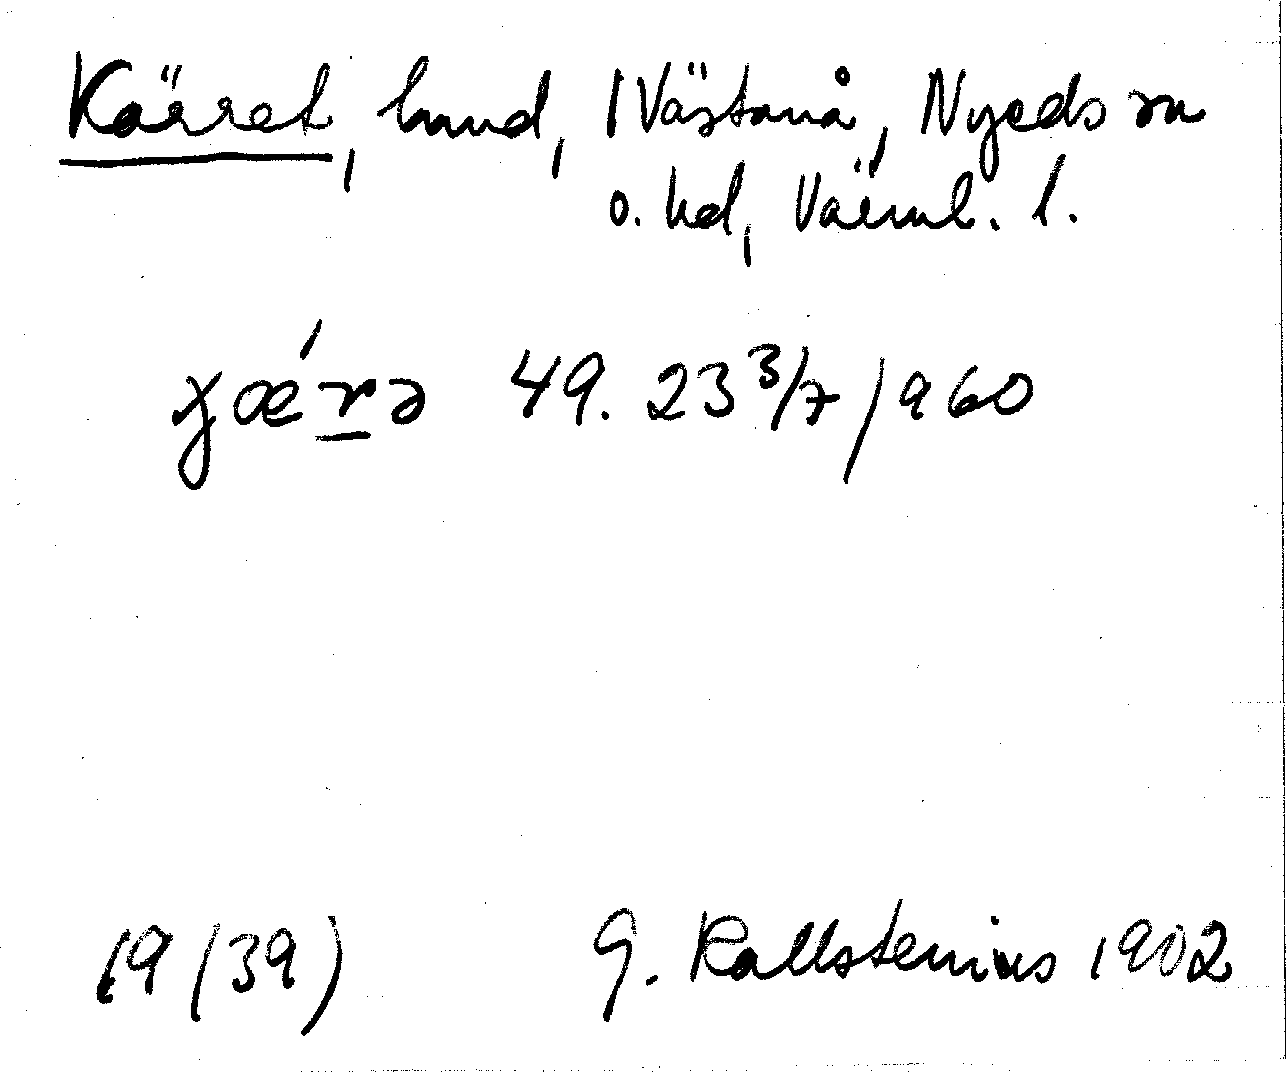 Kärret, hmd, 1 Västanå, Nyeds sn
o. hd, Värml. l.
49. 23 3/7 1960
19 (39) G. Kallstenius 1902